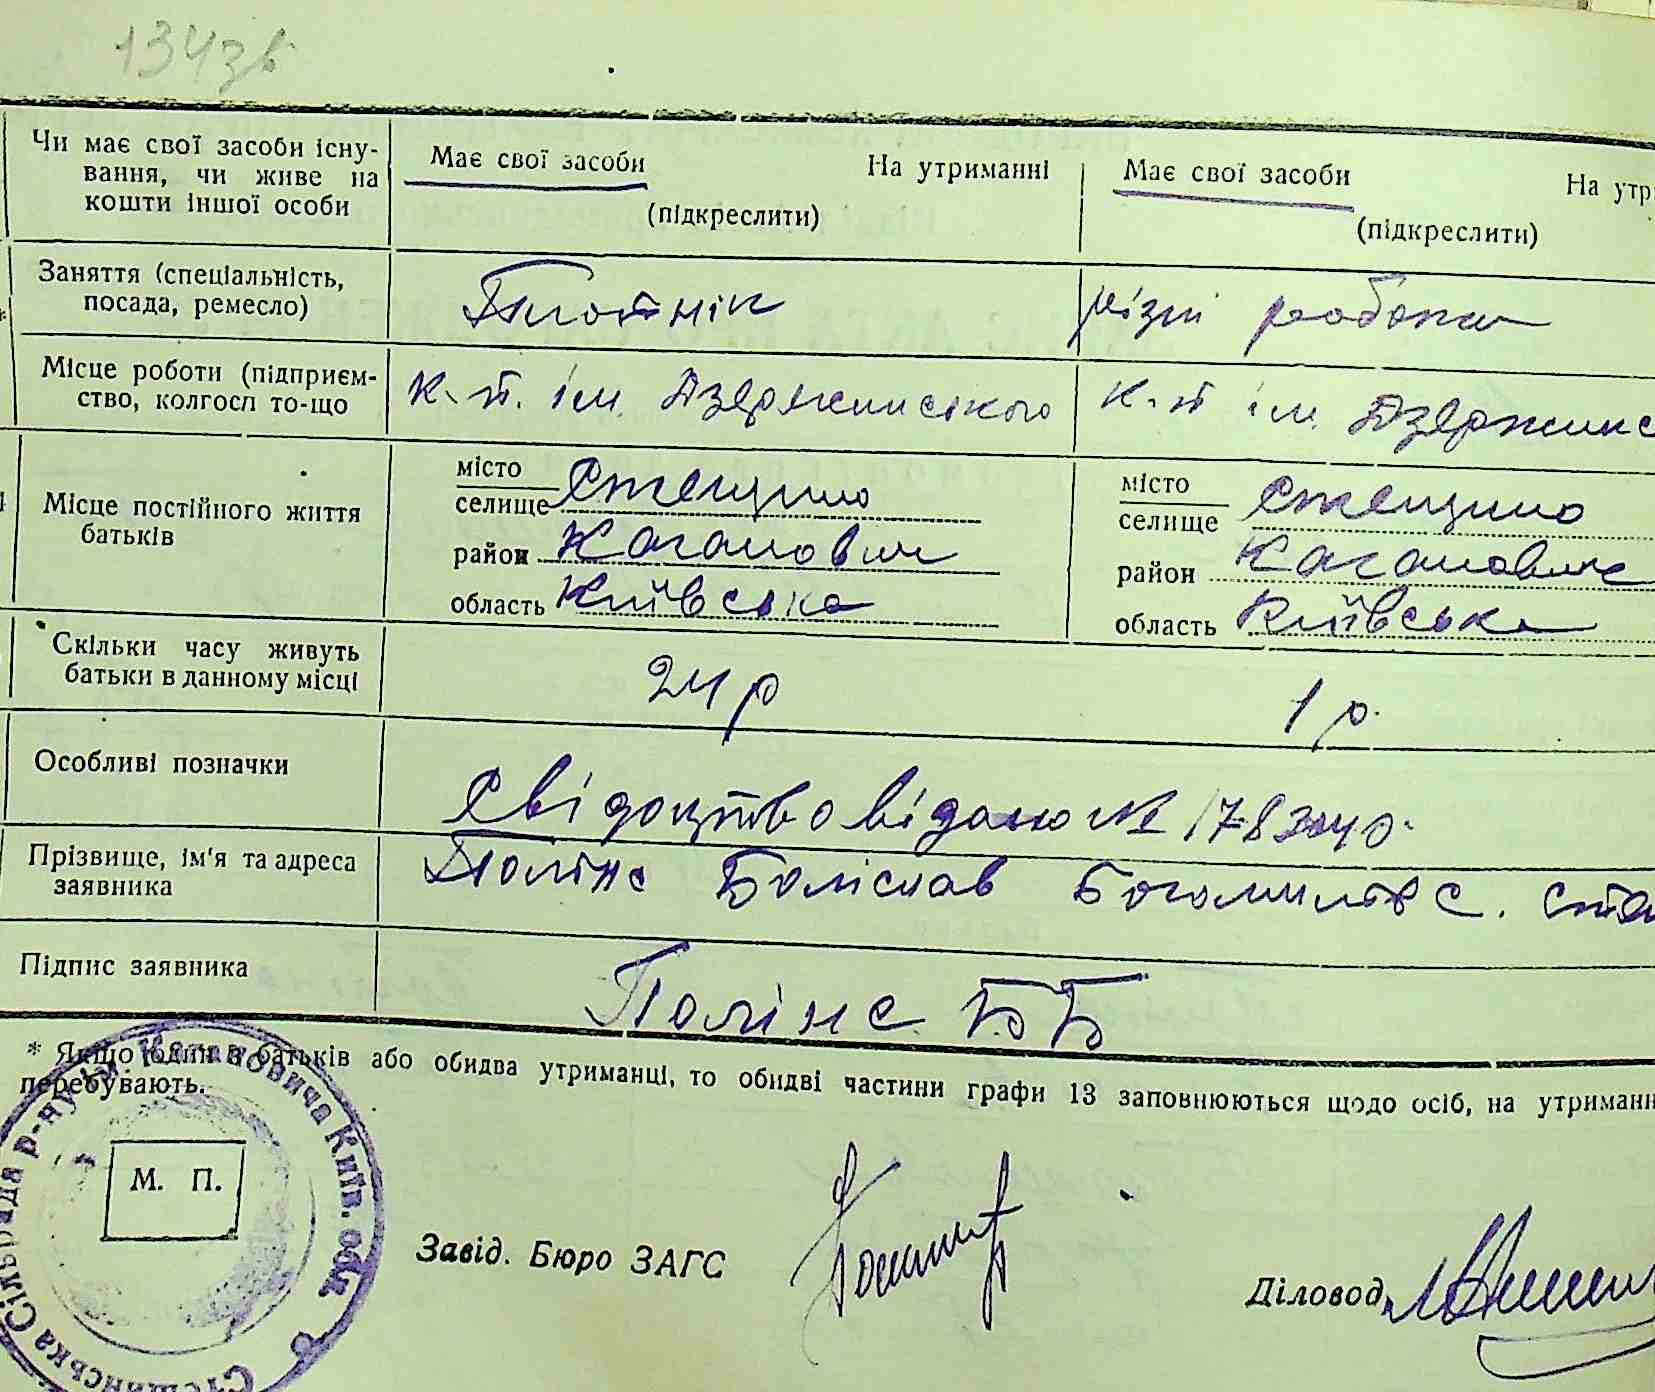 134зв
Чи має свої засоби існу-
вання, чи живе на
кошти іншої особи
Має свої засоби На утриманні
(підкреслити)
Має свої засоби На утр
(підкреслити)
Заняття (спеціальність,
посада, ремесло)
Плотнік
різні роботи
Місце роботи (підприєм-
ство, колгосп то-що
к-п. ім. Дзержинського
к-п ім. Дзержинс
Місце постійного життя
батьків
місто
селище Стещино
район Каганович
область Київська
місто
селище Стещино
район Каганович
область Київська
Скільки часу живуть
батьки в данному місці
24 р
1 р.
Особливі позначки
Свідоцтво відано №
Прізвище, ім'я та адреса
заявника
Полінс Боліслав с. Сте
Підпис заявника
Полінс Б. Б
* Якщо один з батьків або обидва утриманці, то обидві частини графи 13 заповнюються щодо осіб, на утриманн
перебувають.
М. П.
Сільрада р-ну ім. Кагановича Київ. обл
Завід. Бюро ЗАГС
Діловод